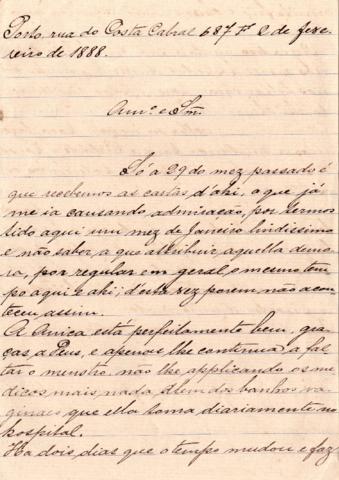 Porto, rua do Costa Cabral 687 F 2 de feve-
reiro de 1888.
Am.º e Sñr.
Só a 29 do mez passado é
que recebemos as cartas d'ahi, o que já
me ia causando admiração, por termos
tido aqui um mez de Janeiro lindissimo
e não saber a que attribuir aquella demo-
ra, por regular em geral o mesmo tem-
po aqui e ahi; d'esta vez porem não acon-
teceu assim.
A Anica está perfeitamente bem, gra-
ças a Deus, e apenas lhe continua a fal-
tar o menstro, não lhe applicando os me-
dicos mais nada, alem dos banhos va-
ginaes que ella toma diariamente no
hospital.
Ha dois dias que o tempo mudou e faz